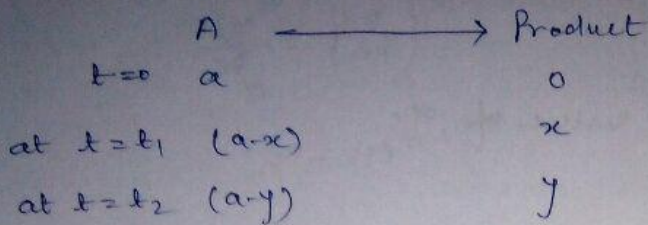 A ⟶ Product
t=0 a 0
at t=t₁ (a-x) x
at t=t₂ (a-y) y